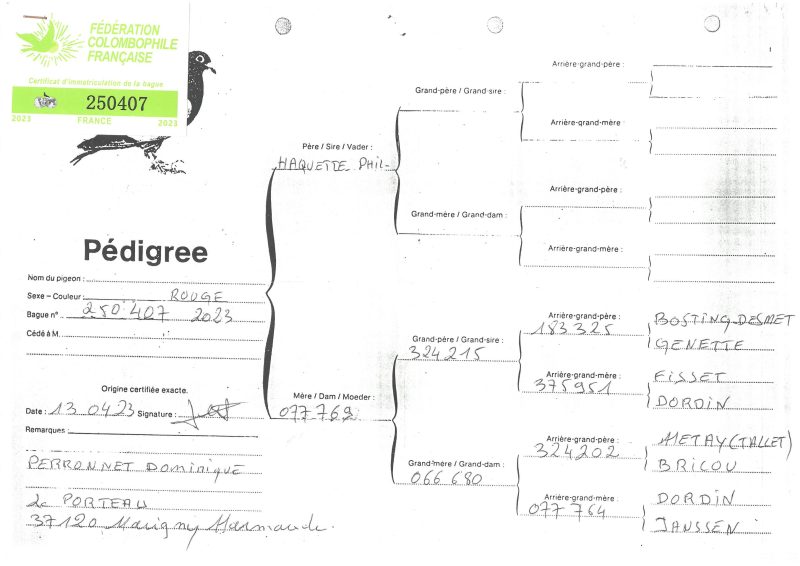 FÉDÉRATION
COLOMBOPHILE
FRANÇAISE
Certificat d'immatriculation de la bague
250407
2023 FRANCE 2023
Pédigree
Nom du pigeon :
Sexe – Couleur : ROUGE
Bague n° 250 407 2023
Cédé à M.
Origine certifiée exacte.
Date : 13 04 23 Signature :
Remarques :
PERRONNET Dominique
PORTEAU
37120 Marigny Marmande.
Père / Sire / Vader :
HAQUETTE PHIL-
Mère / Dam / Moeder :
077 769
Grand-père / Grand-sire :
Grand-mère / Grand-dam :
Grand-père / Grand-sire :
324 215
Grand-mère / Grand-dam :
066 680
Arrière-grand-père :
Arrière-grand-mère :
Arrière-grand-père :
Arrière-grand-mère :
Arrière-grand-père :
183 325
BOSTING-DESMET
GENETTE
Arrière-grand-mère :
375951
FISSET
DORDIN
Arrière-grand-père :
324202
METAY (TALLET)
BRICOU
Arrière-grand-mère :
077 764
DORDIN
JANSSEN